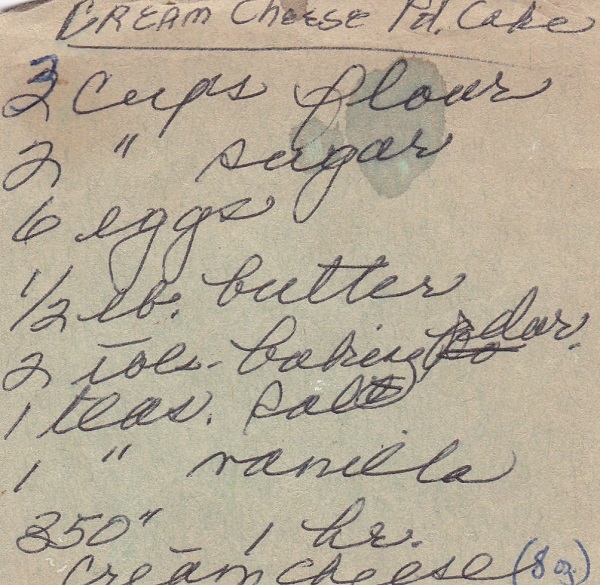 CREAM CHEESE Pd. Cake
3 cups flour
2 " sugar
6 eggs
1/2 lb. butter
2 tbls. baking pdar.
1 teas. salt
1 " vanilla
350° 1 hr.
cream cheese (8 oz.)